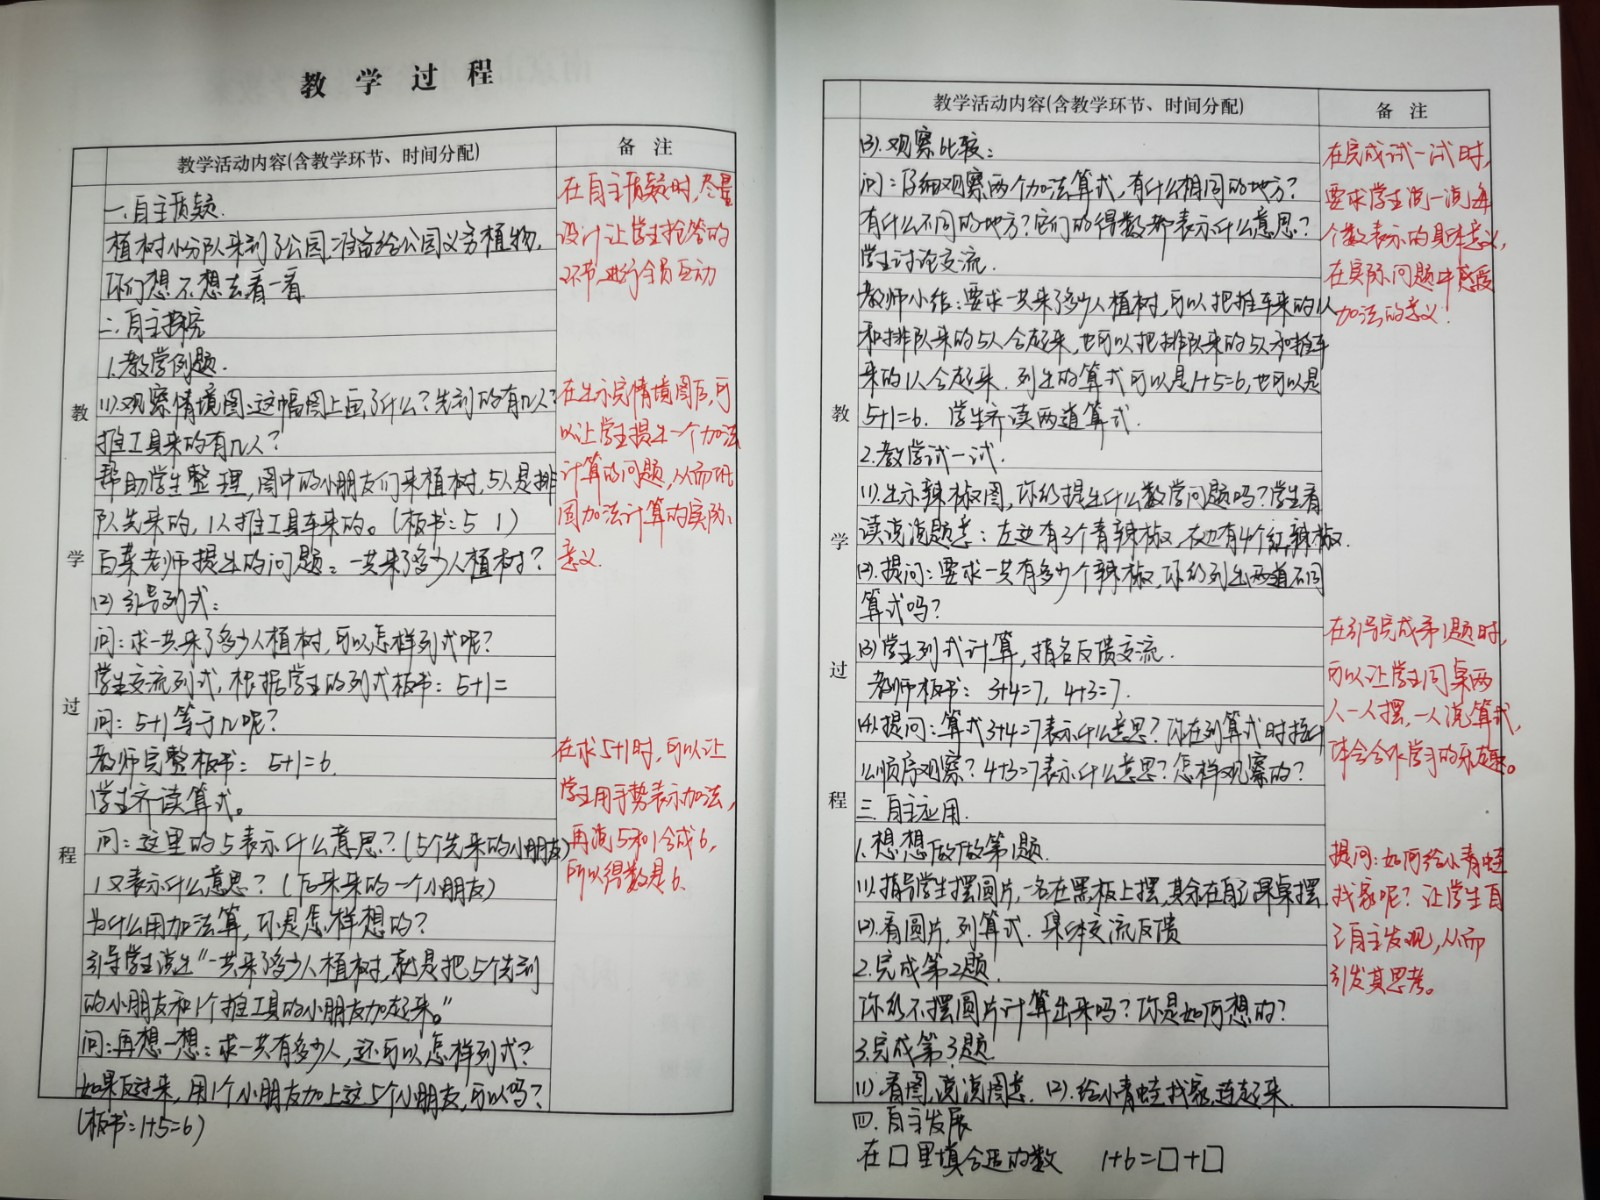 教学过程
教学活动内容(含教学环节、时间分配)
备 注
教
学
过
程
一、自主质疑.
植树小分队来到了公园,准备给公园义务植物,
你们想不想去看一看
二、自主探究
1.教学例题.
(1).观察情境图:这幅图上画了什么?先到的有几人?
推工具来的有几人?
帮助学生整理,图中的小朋友们来植树,5人是排
队先来的,1人推工具车来的。(板书:5 1)
白菜老师提出的问题:一共来了多少人植树?
(2) 引导列式:
问:求一共来了多少人植树,可以怎样列式呢?
学生交流列式,根据学生的列式板书:5+1=
问:5+1等于几呢?
教师完整板书:5+1=6.
学生齐读算式。
问:这里的5表示什么意思?(5个先来的小朋友)
1又表示什么意思?(后来来的一个小朋友)
为什么用加法算,你是怎样想的?
引导学生说出“一共来了多少人植树,就是把5个先到
的小朋友和1个推工具的小朋友加起来。”
问:再想一想:求一共有多少人,还可以怎样列式?
如果反过来,用1个小朋友加上这5个小朋友,可以吗?
(板书:1+5=6)
在自主质疑时,尽量
设计让学生抢答的
环节,进行全员互动
在出示完情境图后,可
以让学生提出一个加法
计算的问题,从而巩
固加法计算的实际
意义.
在求5+1时,可以让
学生用手势表示加法,
再说5和1合成6,
所以得数是6.
教学活动内容(含教学环节、时间分配)
备 注
教
学
过
程
(3).观察比较:
问:仔细观察两个加法算式,有什么相同的地方?
有什么不同的地方?它们的得数都表示什么意思?
学生讨论交流.
教师小结:要求一共来了多少人植树,可以把推车来的1人
和排队来的5人合起来,也可以把排队来的5人和推车
来的1人合起来.列出的算式可以是1+5=6,也可以是
5+1=6. 学生齐读两道算式.
2.教学试一试.
(1).出示辣椒图,你能提出什么数学问题吗?学生看
读说说题意:左边有3个青辣椒,右边有4个红辣椒.
(2).提问:要求一共有多少个辣椒,你能列出两道不同
算式吗?
(3)学生列式计算,指名反馈交流.
教师板书:3+4=7, 4+3=7.
(4).提问:算式3+4=7表示什么意思?你在列算式时按什
么顺序观察?4+3=7表示什么意思?怎样观察的?
三.自主应用.
1.想想做做第1题.
(1).指导学生摆圆片,一名在黑板上摆,其余在自己课桌摆
(2).看圆片,列算式.集体交流反馈
2.完成第2题.
你能不摆圆片计算出来吗?你是如何想的?
3.完成第3题.
(1).看图,说说图意. (2).给小青蛙找家,连起来.
四.自主发展
在□里填合适的数 1+6=□+□
在完成试一试时,
要求学生说一说每
个数表示的具体意义,
在实际问题中感受
加法的意义!
在引导完成第1题时,
可以让学生同桌两
人一人摆,一人说算式,
体会合作学习的乐趣。
提问:如何给小青蛙
找家呢?让学生自
己自主发现,从而
引发其思考。